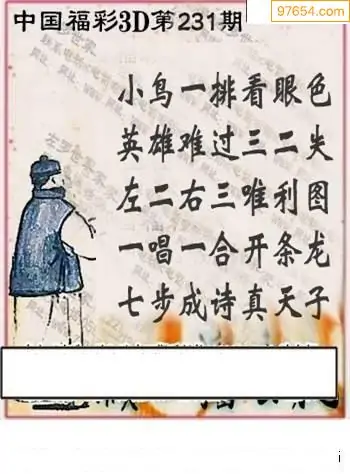 97654.com
中国福彩3D第231期
小鸟一排看眼色
英雄难过三二失
左二右三唯利图
一唱一合开条龙
七步成诗真天子
i